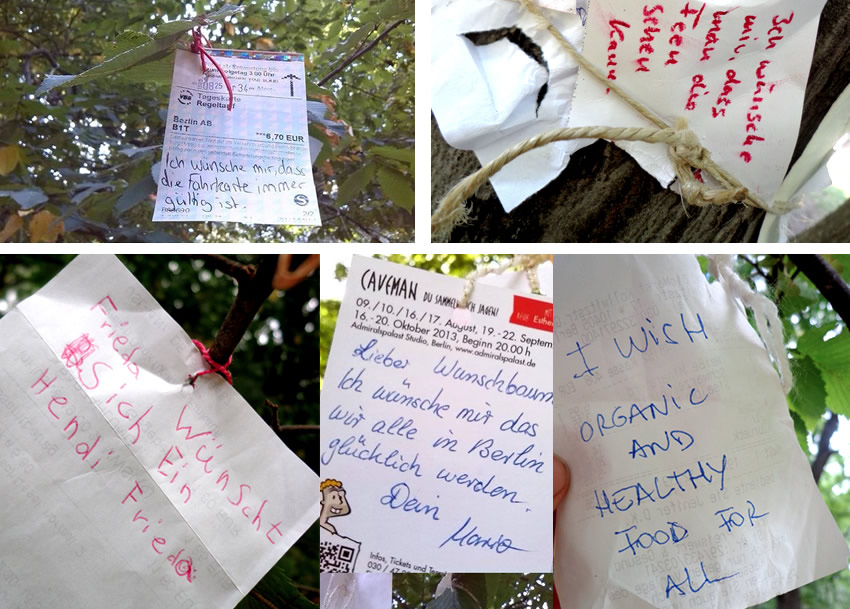 Folgetag 3.00 Uhr
VBB Tageskarte
Regeltarif
Berlin AB
B1T
***6,70 EUR
Ich wünsche mir, dass
die Fahrkarte immer
gültig ist.
Ich wünsche
mir, dass
man die
Feen
Sehen
kann.
Frieda Wünscht
Sich Ein
Hendi Frieda
CAVEMAN DU SAMMELN ICH JAGEN!
09./10./16./17. August, 19.-22. Septem
16.-20. Oktober 2013, Beginn 20.00 h
Admiralspalast Studio, Berlin, www.admiralspalast.de
Esthe
Lieber Wunschbaum
Ich wünsche mir das
wir alle in Berlin
glücklich werden.
Dein
Mario
Infos, Tickets und
030 / 47
I WISH
ORGANIC
AND
HEALTHY
FOOD FOR
ALL